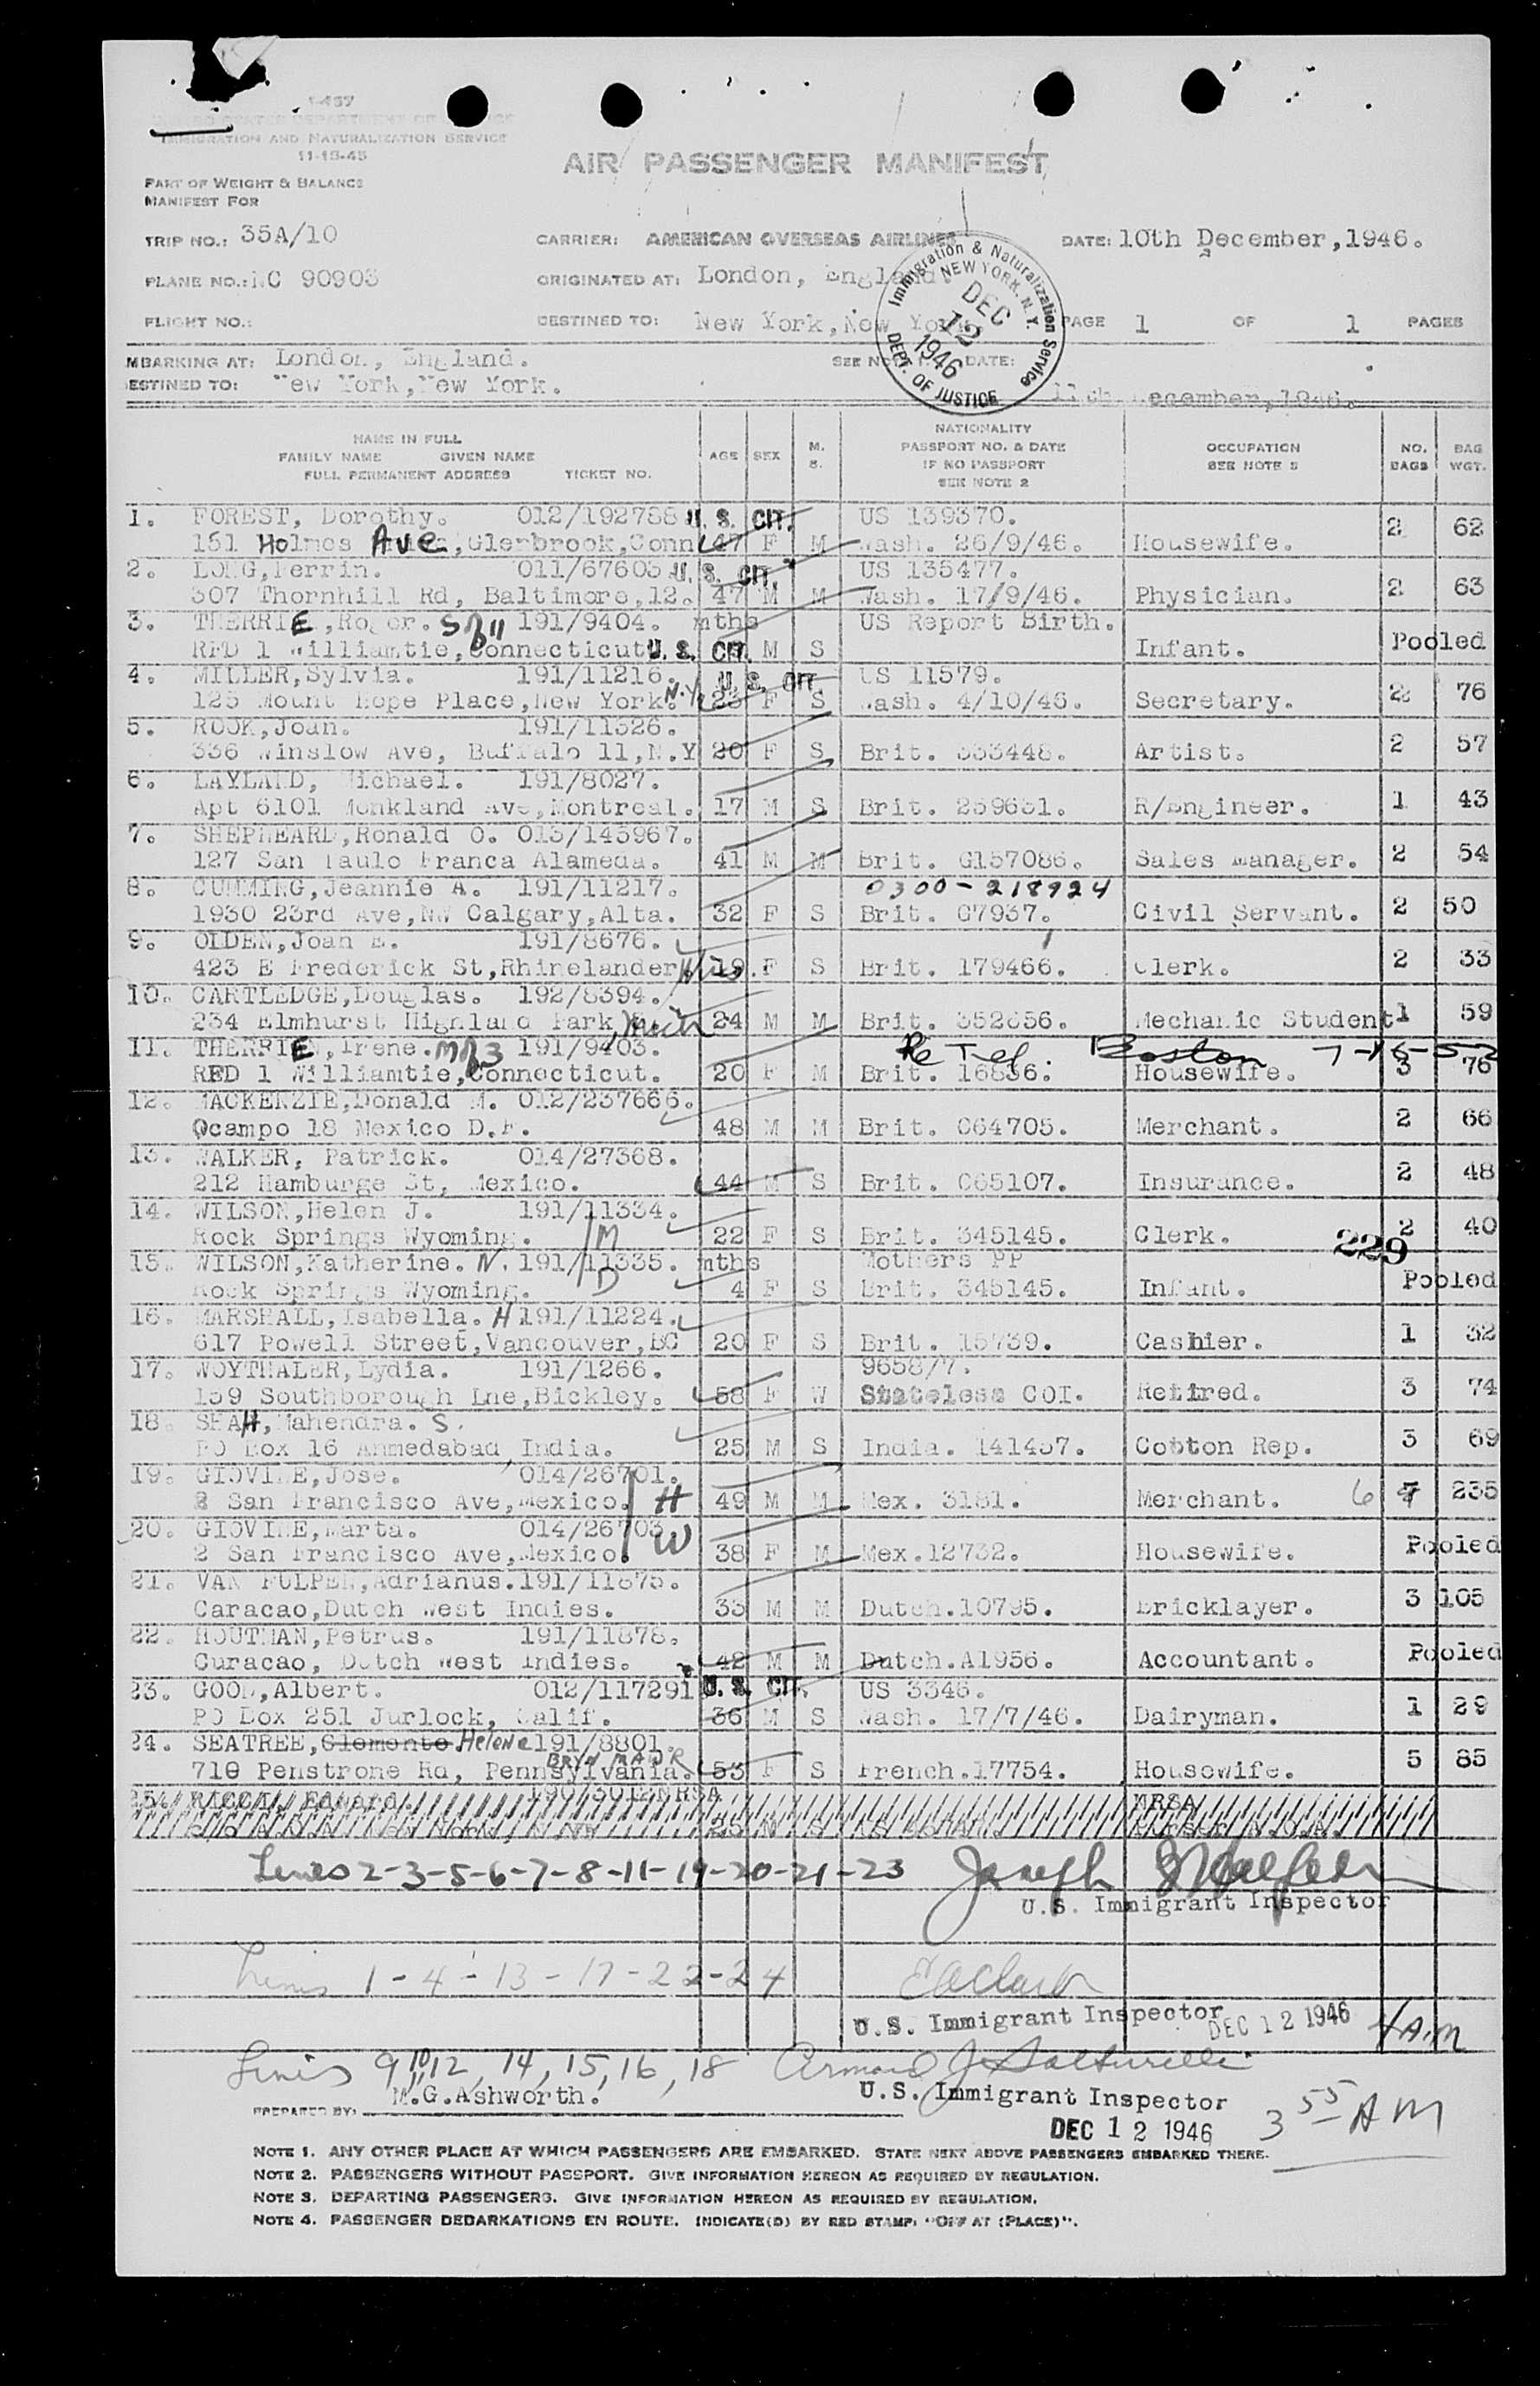 I-437
UNITED STATES DEPARTMENT OF JUSTICE
IMMIGRATION AND NATURALIZATION SERVICE
11-15-45
AIR PASSENGER MANIFEST
PART OF WEIGHT & BALANCE
MANIFEST FOR
TRIP NO.: 35A/10 CARRIER: AMERICAN OVERSEAS AIRLINES DATE: 10th December,1946.
PLANE NO.: NC 90903 ORIGINATED AT: London, England.
FLIGHT NO.: DESTINED TO: New York,New York PAGE 1 OF 1 PAGES
Immigration & Naturalization Service NEW YORK, N.Y. DEC 12 1946 DEPT. OF JUSTICE
MBARKING AT: London, England. SEE NOTE DATE:
ESTINED TO: New York,New York. December,1946.
NAME IN FULL
FAMILY NAME GIVEN NAME
FULL PERMANENT ADDRESS TICKET NO. AGE SEX M. S. NATIONALITY PASSPORT NO. & DATE IF NO PASSPORT SEE NOTE 2 OCCUPATION SEE NOTE 3 NO. BAGS BAG WGT.
1. FOREST, Dorothy. 012/192788 U. S. CIT. US 139370.
151 Holmes Ave,Glenbrook,Conn 47 F M Wash. 26/9/46. Housewife. 2 62
2. LONG,Perrin. 011/67603 U. S. CIT. US 135477.
307 Thornhill Rd, Baltimore,12. 47 M M Wash. 17/9/46. Physician. 2 63
3. THERRIE ,Roger. 191/9404. mths US Report Birth.
RFD 1 Williamtie,Connecticut U. S. CIT. M S Infant. Pooled
4. MILLER,Sylvia. 191/11216. U. S. CIT. US 11579.
125 Mount Hope Place,New York. N.Y. 23 F S Wash. 4/10/46. Secretary. 2 76
5. ROOK,Joan. 191/11326.
336 Winslow Ave, Buffalo 11,N.Y 20 F S Brit. 333448. Artist. 2 57
6. LAYLAND, Michael. 191/8027.
Apt 6101 Monkland Ave,Montreal. 17 M S Brit. 259631. R/Engineer. 1 43
7. SHEPHEARD,Ronald O. 013/143967.
127 San Paulo Franca Alameda. 41 M M Brit. G157086. Sales Manager. 2 54
8. CUMMING,Jeannie A. 191/11217. 0300-218924
1930 23rd Ave,NW Calgary,Alta. 32 F S Brit. C7937. Civil Servant. 2 50
9. OLDEN,Joan E. 191/8676.
423 E Frederick St,Rhinelander Wis. 19 F S Brit. 179466. Clerk. 2 33
10. CARTLEDGE,Douglas. 192/8394.
234 Elmhurst Highland Park, Mich 24 M M Brit. 352656. Mechanic Student 1 59
11. THERRIE ,Irene. 191/9403. Re Tef. Boston 7-18-52
RFD 1 Williamtie,Connecticut. 20 F M Brit. 16836. Housewife. 3 76
12. MACKENZIE,Donald M. 012/237666.
Ocampo 18 Mexico D.F. 48 M M Brit. C64705. Merchant. 2 66
13. WALKER, Patrick. 014/27368.
212 Hamburge St, Mexico. 44 M S Brit. C65107. Insurance. 2 48
14. WILSON,Helen J. 191/11334.
Rock Springs Wyoming. M 22 F S Brit. 345145. Clerk. 2 40
229
15. WILSON,Katherine. N. 191/11335. mths Mothers PP
Rock Springs Wyoming. D 4 F S Brit. 345145. Infant. Pooled
16. MARSHALL,Isabella. H 191/11224.
617 Powell Street,Vancouver,BC 20 F S Brit. 15739. Cashier. 1 32
17. WOYTHALER,Lydia. 191/1266. 9658/7.
159 Southborough Lne,Bickley. 58 F W Stateless COI. Retired. 3 74
18. SHAH,Mahendra. S.
PO Box 16 Ahmedabad India. 25 M S India. 141437. Cotton Rep. 3 69
19. GIOVINE,Jose. 014/26701.
2 San Francisco Ave,Mexico. H 49 M M Mex. 3181. Merchant. 6 7 235
20. GIOVINE,Marta. 014/26703 W
2 San Francisco Ave,Mexico. 38 F M Mex.12732. Housewife. Pooled
21. VAN FULPEN,Adrianus.191/11875.
Caracao,Dutch West Indies. 33 M M Dutch.10795. Bricklayer. 3 105
22. HOUTMAN,Petrus. 191/11878.
Curacao, Dutch West Indies. 42 M M Dutch.A1956. Accountant. Pooled
23. GOOD,Albert. 012/117291 U. S. CIT. US 3346.
PO Box 251 Jurlock, Calif. 36 M S Wash. 17/7/46. Dairyman. 1 29
24. SEATREE,Clemente Helene 191/8801.
710 Penstrone Rd, Pennsylvania. BRYN MAWR 53 F S French.17754. Housewife. 5 85
25. RICCI, Edward. NRSA
25 M S NRSA
Lines 2-3-5-6-7-8-11-19-20-21-23 Joseph
U.S. Immigrant Inspector
Lines 1-4-13-17-22-24 E A Clark
U.S. Immigrant Inspector DEC 12 1946 4 AM
Lines 9, 10, 12, 14, 15, 16, 18 Armand J
PREPARED BY: M.G.Ashworth. U.S. Immigrant Inspector
DEC 12 1946 3 55 AM
NOTE 1. ANY OTHER PLACE AT WHICH PASSENGERS ARE EMBARKED. STATE NEXT ABOVE PASSENGERS EMBARKED THERE.
NOTE 2. PASSENGERS WITHOUT PASSPORT. GIVE INFORMATION HEREON AS REQUIRED BY REGULATION.
NOTE 3. DEPARTING PASSENGERS. GIVE INFORMATION HEREON AS REQUIRED BY REGULATION.
NOTE 4. PASSENGER DEBARKATIONS EN ROUTE. INDICATE(D) BY RED STAMP: "OFF AT (PLACE)".